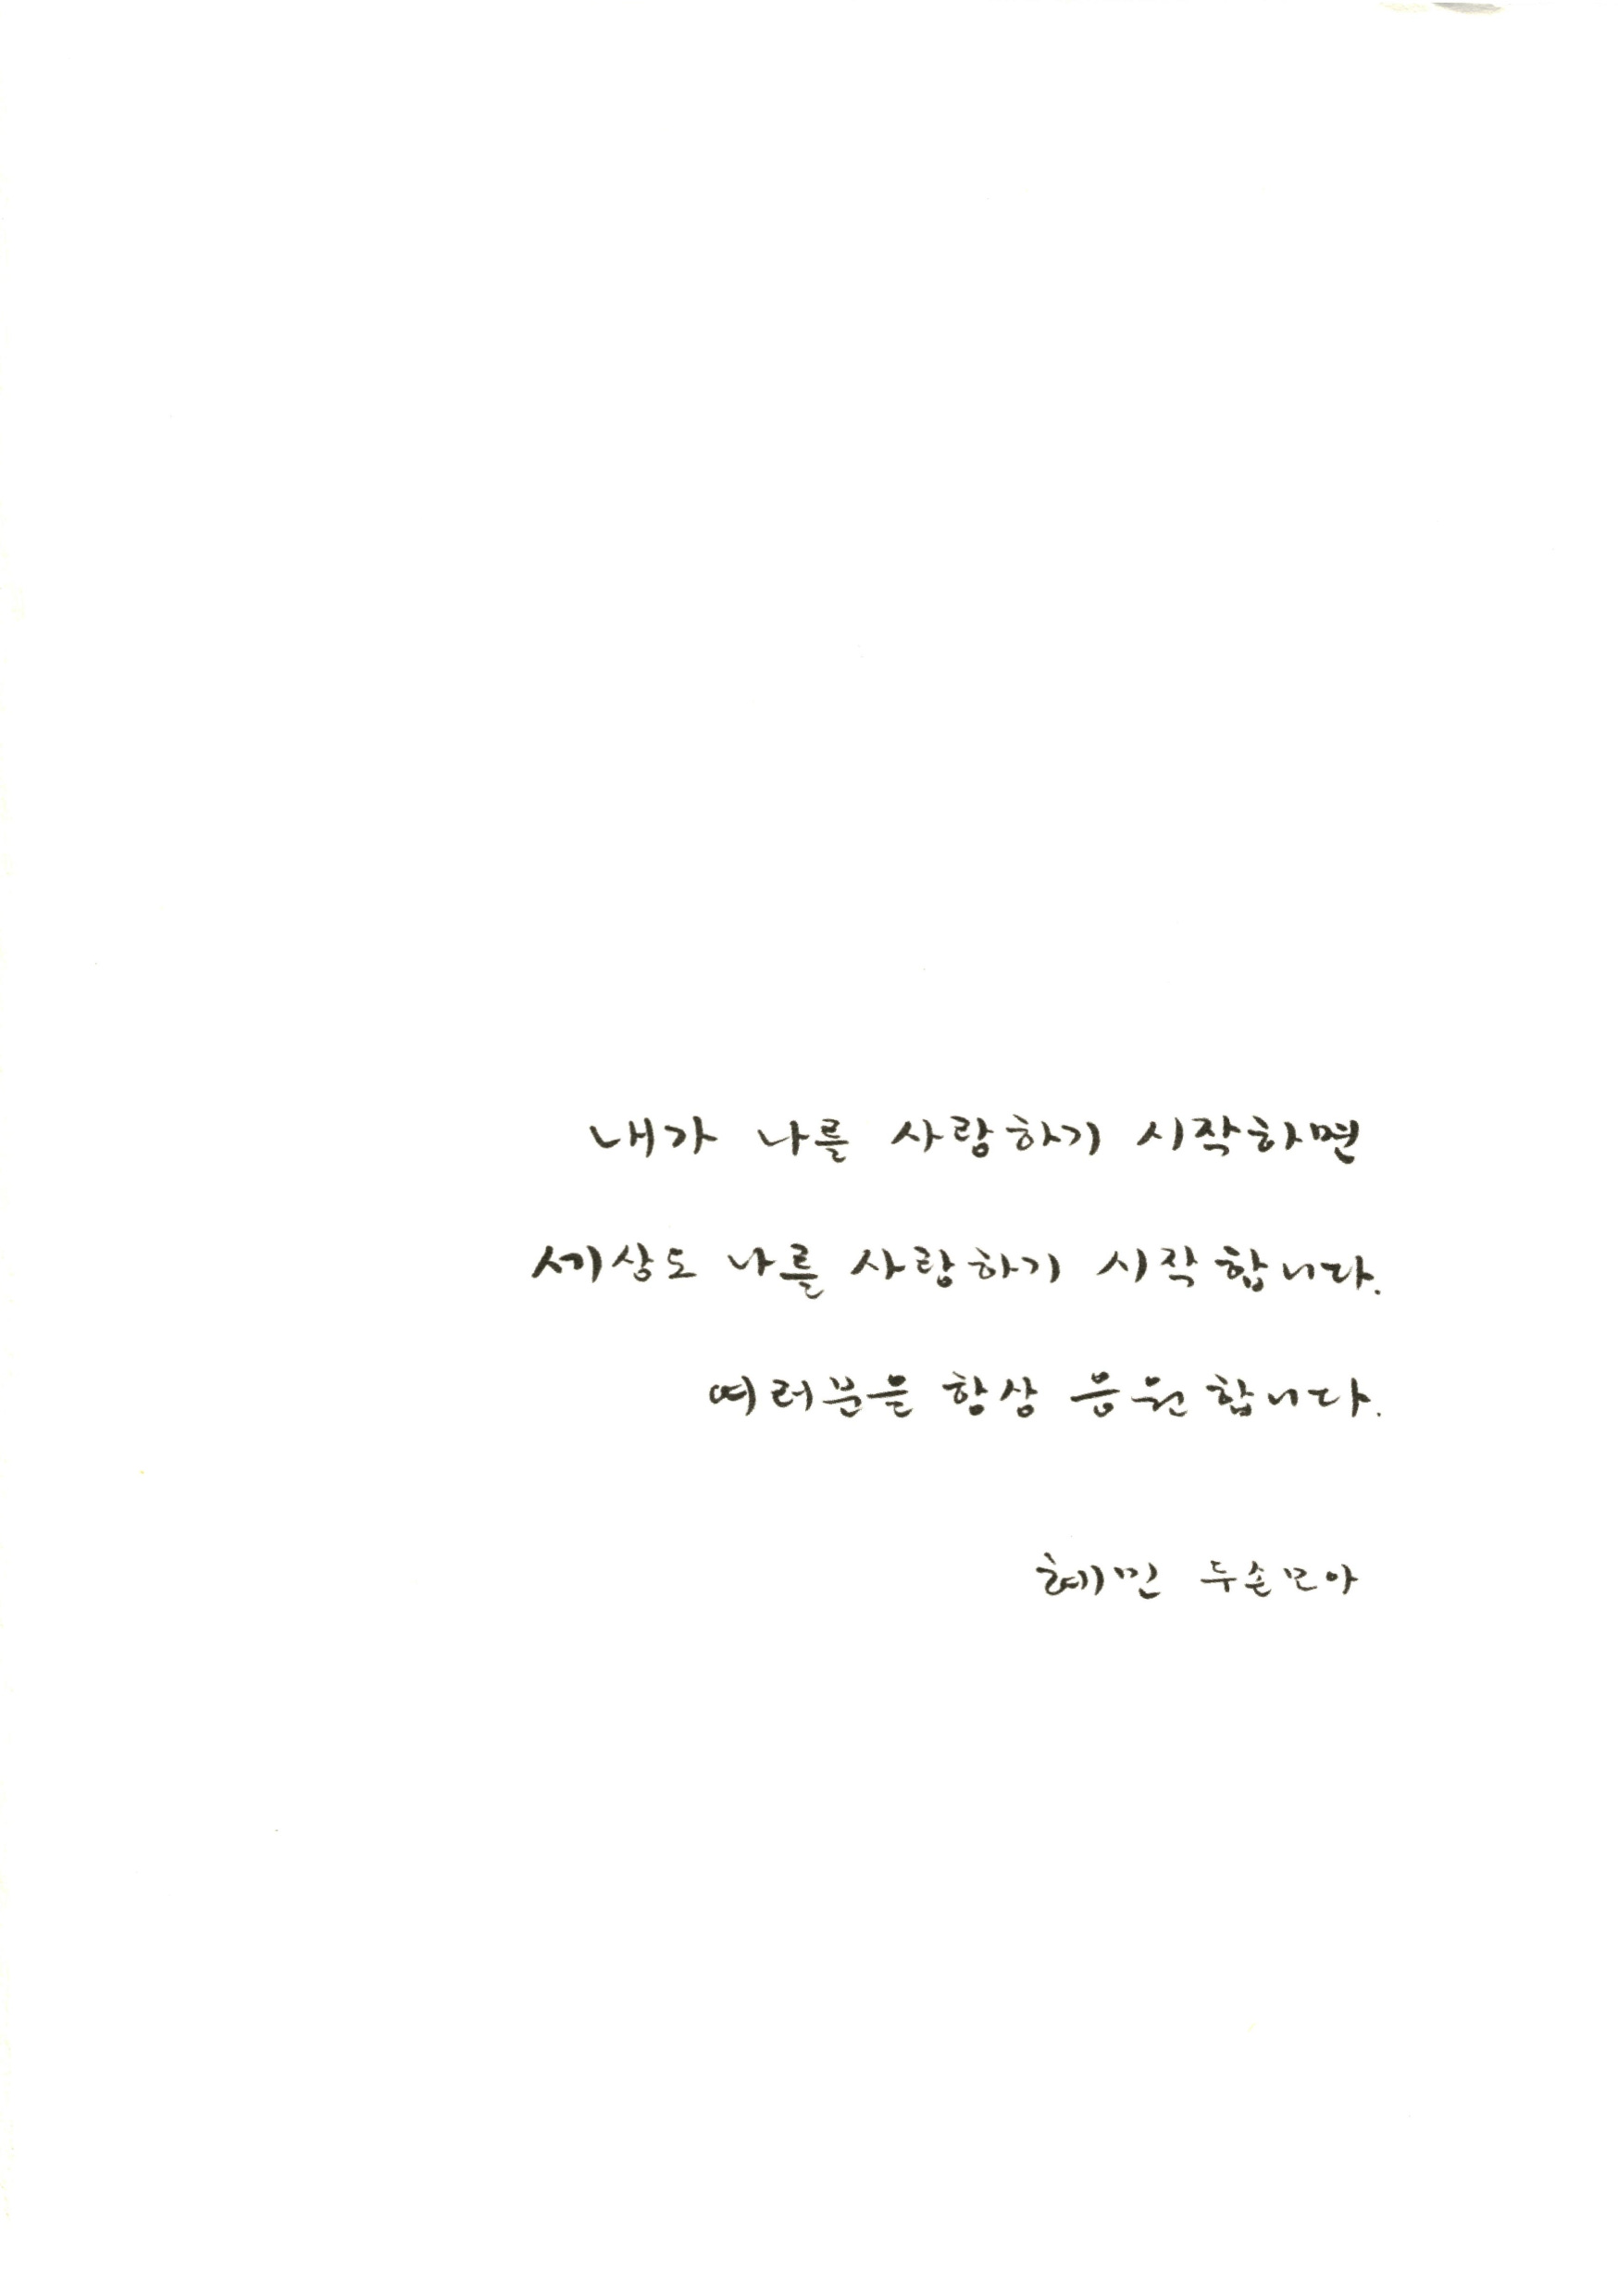 내가 나를 사랑하기 시작하면
세상도 나를 사랑하기 시작합니다.
여러분을 항상 응원합니다.
혜민 두손모아